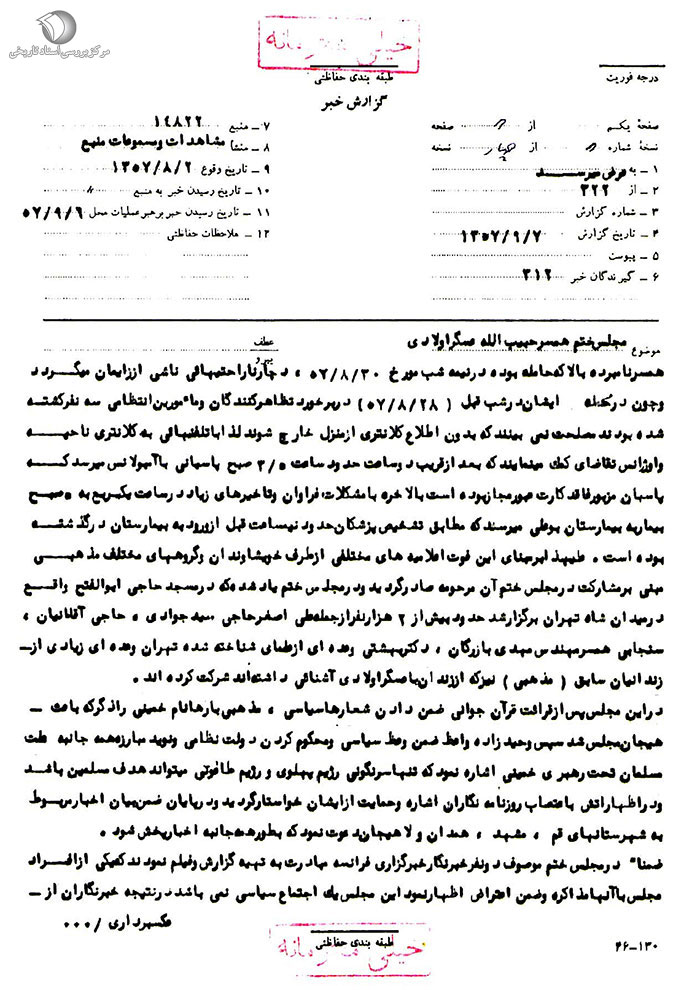 مرکز بررسی اسناد تاریخی
خیلی محرمانه
طبقه بندی حفاظتی
درجه فوریت
گزارش خبر
صفحهٔ یکم از صفحه
نسخهٔ شماره از چهار نسخه
۱ – به عرض میرسد
۲ – از ۳۲۲
۳ – شماره گزارش
۴ – تاریخ گزارش ۱۳۵۷/۹/۷
۵ – پیوست
۶ – گیرندگان خبر ۳۱۲
۷ – منبع ۱۴۸۲۲
۸ – منشأ مشاهدات و مسموعات منبع
۹ – تاریخ وقوع ۱۳۵۷/۸/۲
۱۰ – تاریخ رسیدن خبر به منبع "
۱۱ – تاریخ رسیدن خبر برهبر عملیات محل ۵۷/۹/۶
۱۲ – ملاحظات حفاظتی
موضوع مجلس ختم همسر حبیب الله عسگراولادی
عطف
پیرو
همسر نامبرده بالا که حامله بوده در نیمه شب مورخ ۵۷/۸/۳۰ ، دچار ناراحتیهائی ناشی از زایمان میگردد
وچون در محله ایشان در شب قبل (۵۷/۸/۲۸) در برخورد تظاهرکنندگان ومامورین انتظامی سه نفر کشته
شده بودند مصلحت نمی بینند که بدون اطلاع کلانتری از منزل خارج شوند لذا با تلفنهائی به کلانتری ناحیه
واورژانس تقاضای کمک مینمایند که بعد از قریب دو ساعت حدود ساعت ۳/۵ صبح پاسبانی با آمبولانس میرسد که
پاسبان مزبور فاقد کارت عبور مجاز بوده است بالاخره با مشکلات فراوان وتاخیرهای زیاد در ساعت یکربع به ۵ صبح
بیمار به بیمارستان بوعلی میرسند که مطابق تشخیص پزشکان حدود نیمساعت قبل از ورود به بیمارستان درگذشته
بوده است . طیهذا بر مبنای این فوت اعلامیه های مختلفی از طرف خویشاوندان وگروههای مختلف مذهبی
مبنی بر مشارکت در مجلس ختم آن مرحومه صادر گردید ودر مجلس ختم یاد شده که در مسجد حاجی ابوالفتح واقع
در میدان شاه تهران برگزار شد حدود بیش از ۲ هزار نفر از جمله علی اصغر حاجی سید جوادی ، حاجی آقا نیان ،
سنجابی همسر مهندس مهدی بازرگان ، دکتر بهشتی وعده ای از علمای شناخته شده تهران وعده ای زیادی از –
زندانیان سابق (مذهبی) نیز که از زندان با عسگراولادی آشنائی داشته اند شرکت کرده اند .
در این مجلس پس از قرائت قرآن جوانی ضمن دادن شعارها سیاسی ، مذهبی بارها نام خمینی را ذکر که باعث –
هیجان مجلس شد سپس وحید زاده واعظ ضمن وعظ سیاسی ومحکوم کردن دولت نظامی ونوید مبارزه همه جانبه ملت
مسلمان تحت رهبری خمینی اشاره نمود که تنها سرنگونی رژیم پهلوی و رژیم طاغوتی میتواند هدف مسلمین باشد
ودر اظهاراتش با عتصاب روزنامه نگاران اشاره وحمایت از ایشان خواستار گردید ودر پایان ضمن بیان اخبار مربوط
به شهرستانهای قم ، مشهد ، همدان و لاهیجان دعوت نمود که بطور همه جانبه اخبار پخش شود .
ضمنا" در مجلس ختم موصوف دونفر خبرنگار خبرگزاری فرانسه مبادرت به تهیه گزارش وفیلم نمودند که یکی از افراد
مجلس با آنها مذاکره وضمن اعتراض اظهار نمود این مجلس یک اجتماع سیاسی نمی باشد در نتیجه خبرنگاران از –
عکسبرداری /۰۰۰
طبقه بندی حفاظتی
خیلی محرمانه
۲۶–۱۳۰